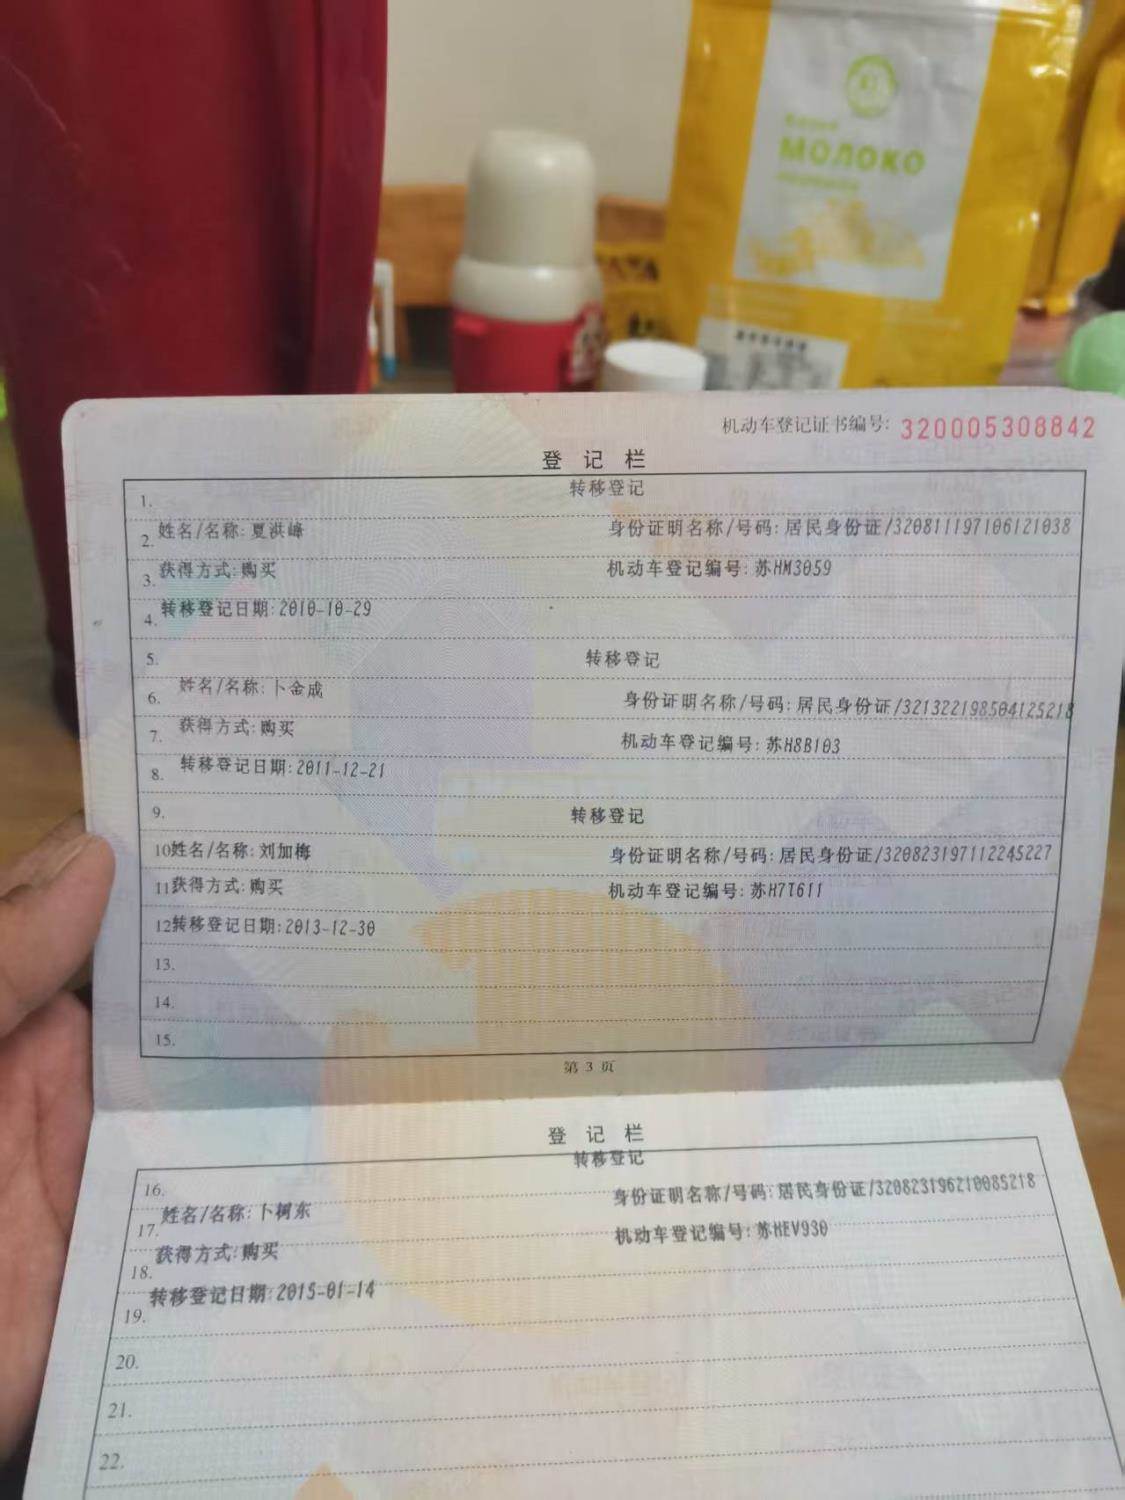 МОЛОКО
机动车登记证书编号: 320005308842
登 记 栏
1. 转移登记
2. 姓名/名称: 夏洪峰 身份证明名称/号码: 居民身份证/320811197106121038
3. 获得方式: 购买 机动车登记编号: 苏HM3059
4. 转移登记日期: 2010-10-29
5. 转移登记
6. 姓名/名称: 卜金成 身份证明名称/号码: 居民身份证/321322198504125218
7. 获得方式: 购买 机动车登记编号: 苏H8B103
8. 转移登记日期: 2011-12-21
9. 转移登记
10 姓名/名称: 刘加梅 身份证明名称/号码: 居民身份证/320823197112245227
11 获得方式: 购买 机动车登记编号: 苏H7T611
12 转移登记日期: 2013-12-30
13.
14.
15.
第 3 页
登 记 栏
16. 转移登记
17. 姓名/名称: 卜树东 身份证明名称/号码: 居民身份证/320823196210085218
18. 获得方式: 购买 机动车登记编号: 苏HEV930
19. 转移登记日期: 2015-01-14
20.
21.
22.